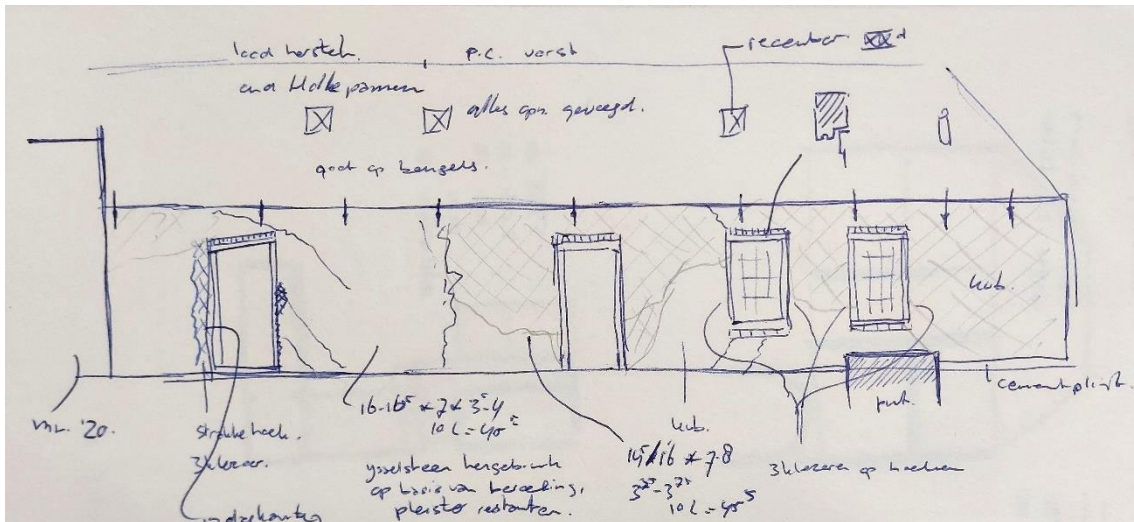 lood herstek.
P.C. vorst
recenter
oud Holle pannen
alles opn. gevoegd.
goot op beugels.
kub.
cementplint.
mv. '20.
strekke hoek.
3klezoor.
16-16⁵ * 7 * 3⁵-4
10 L = 40⁵
ijsselsteen hergebruik
op basis van beroeking,
pleister restanten.
kub.
15⁵/16 * 7-8
3²⁵-3⁷⁵
10 L = 40⁵
3klezoren op hoeken